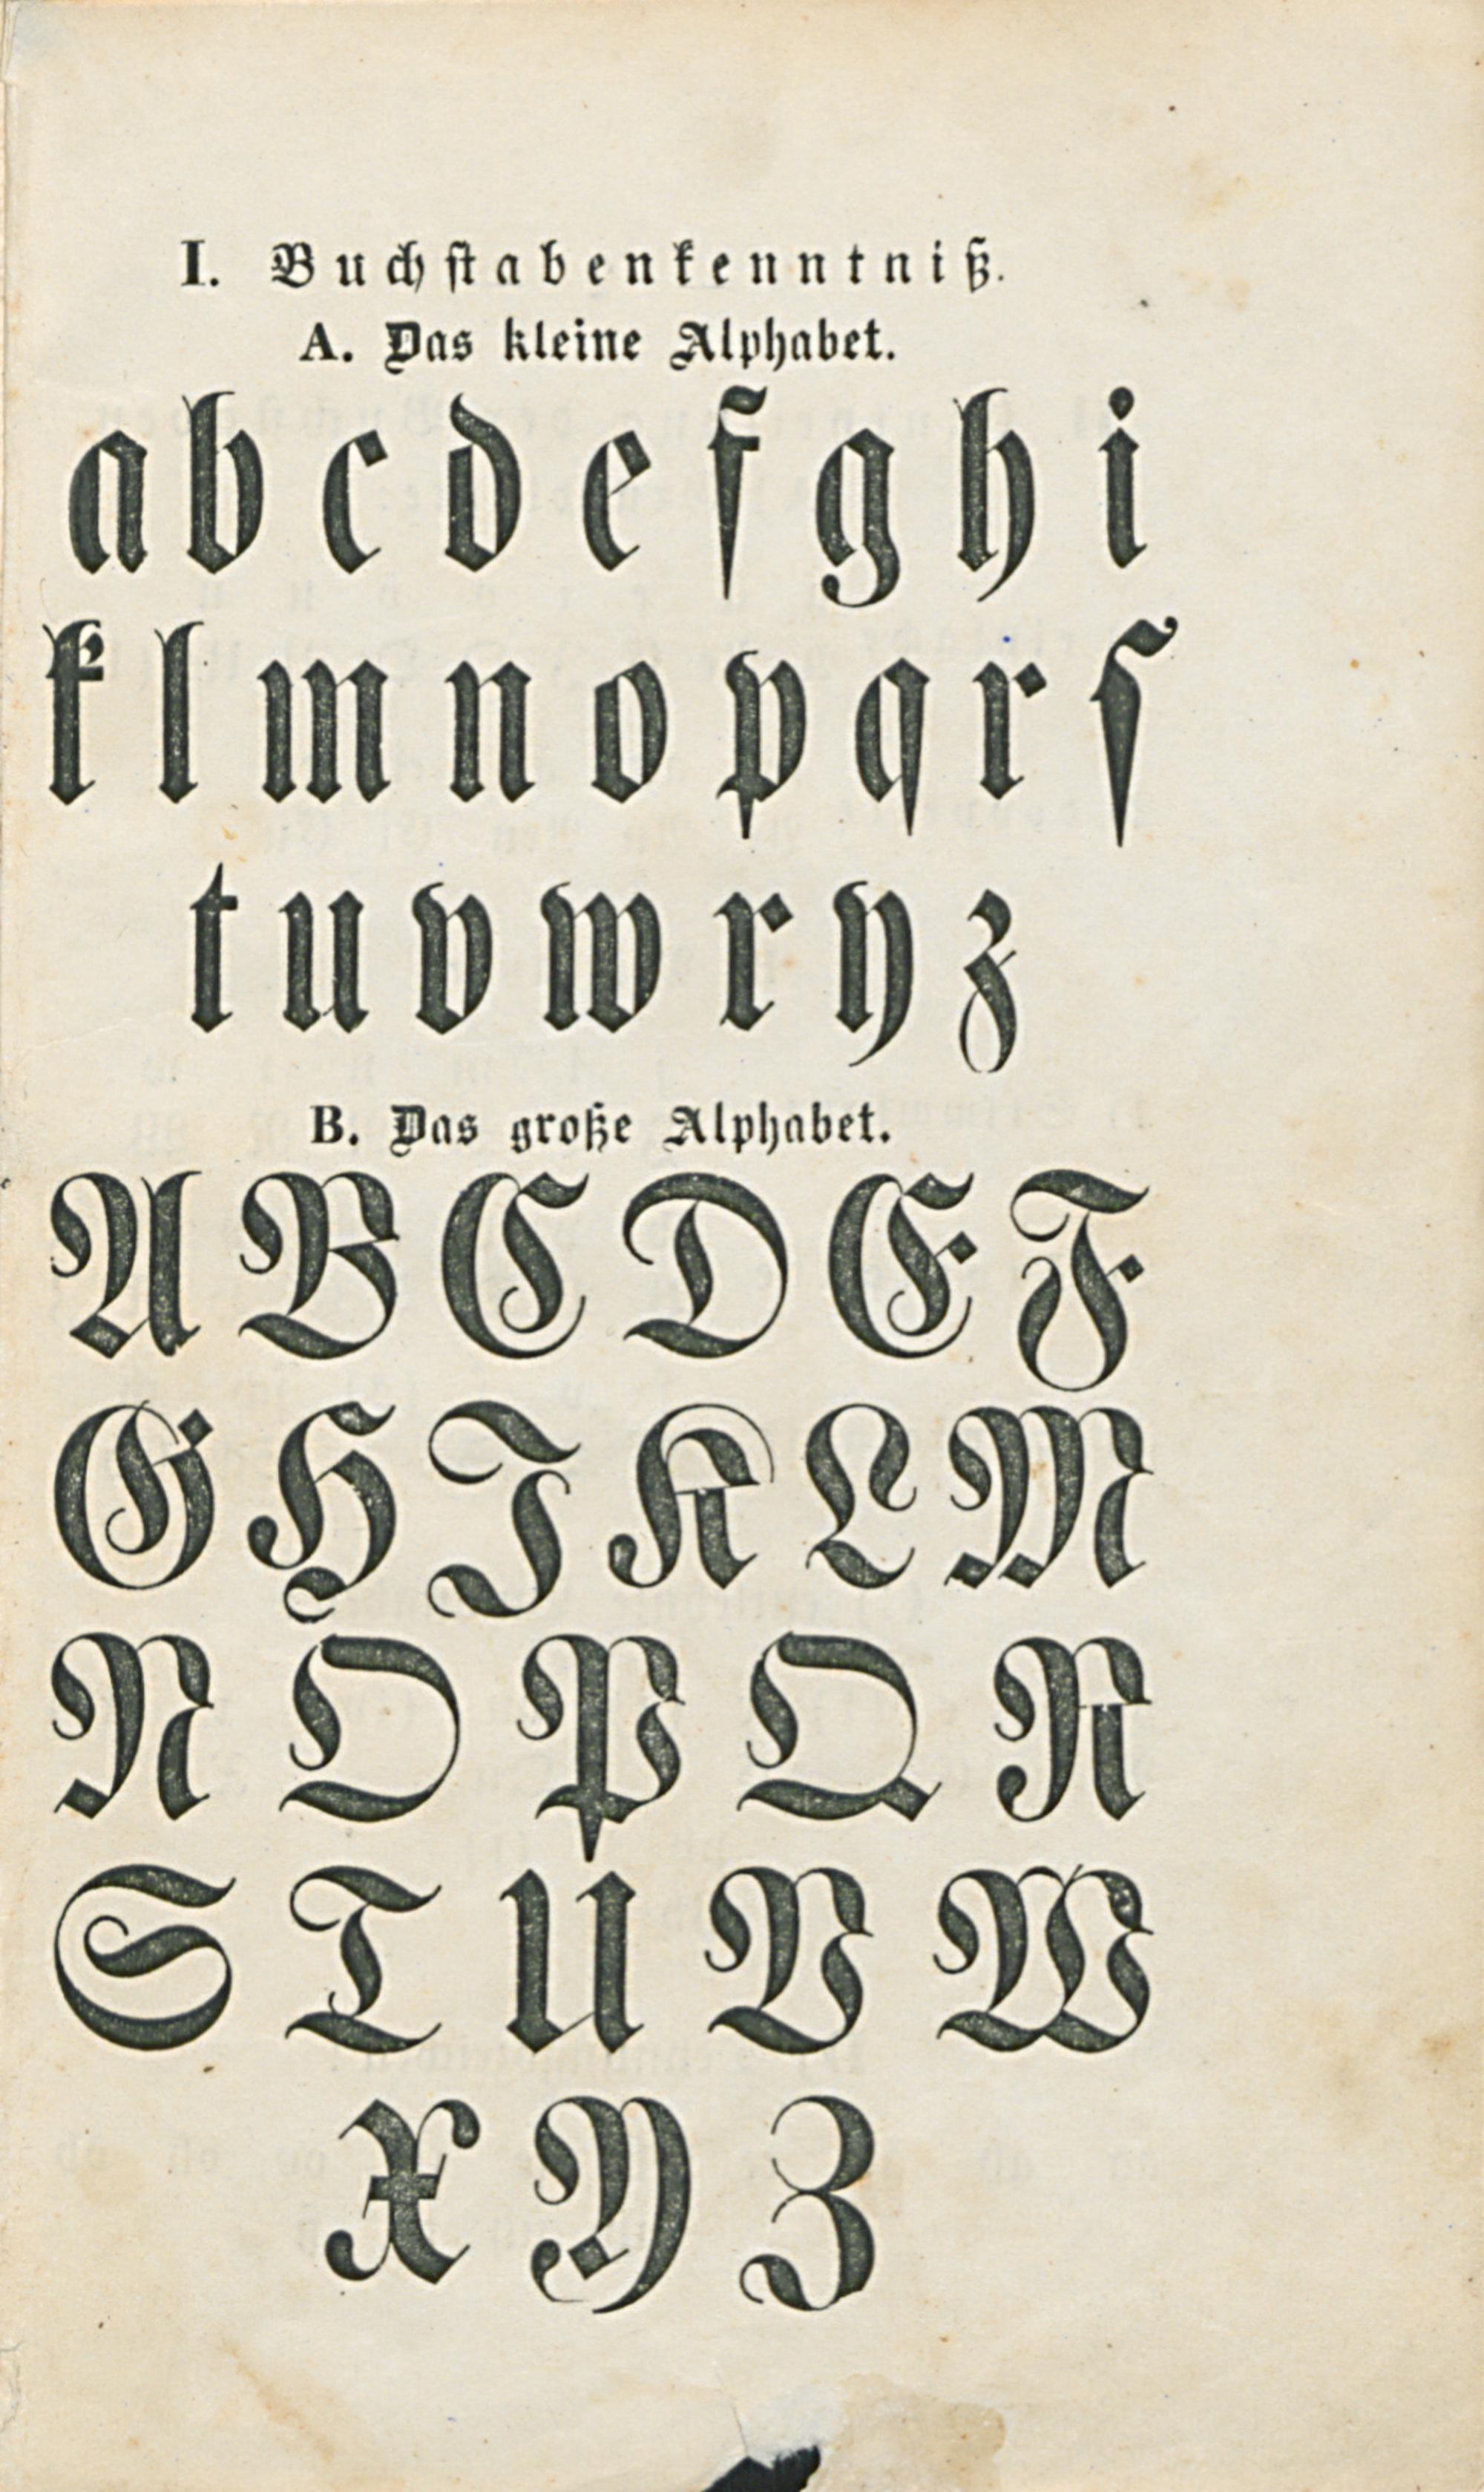 I. Buchſtabenkenntniß.
A. Das kleine Alphabet.
a b c d e f g h i
k l m n o p q r ſ
t u v w x y z
B. Das große Alphabet.
A B C D E F
G H J K L M
N O P Q R
S T U V W
X Y Z